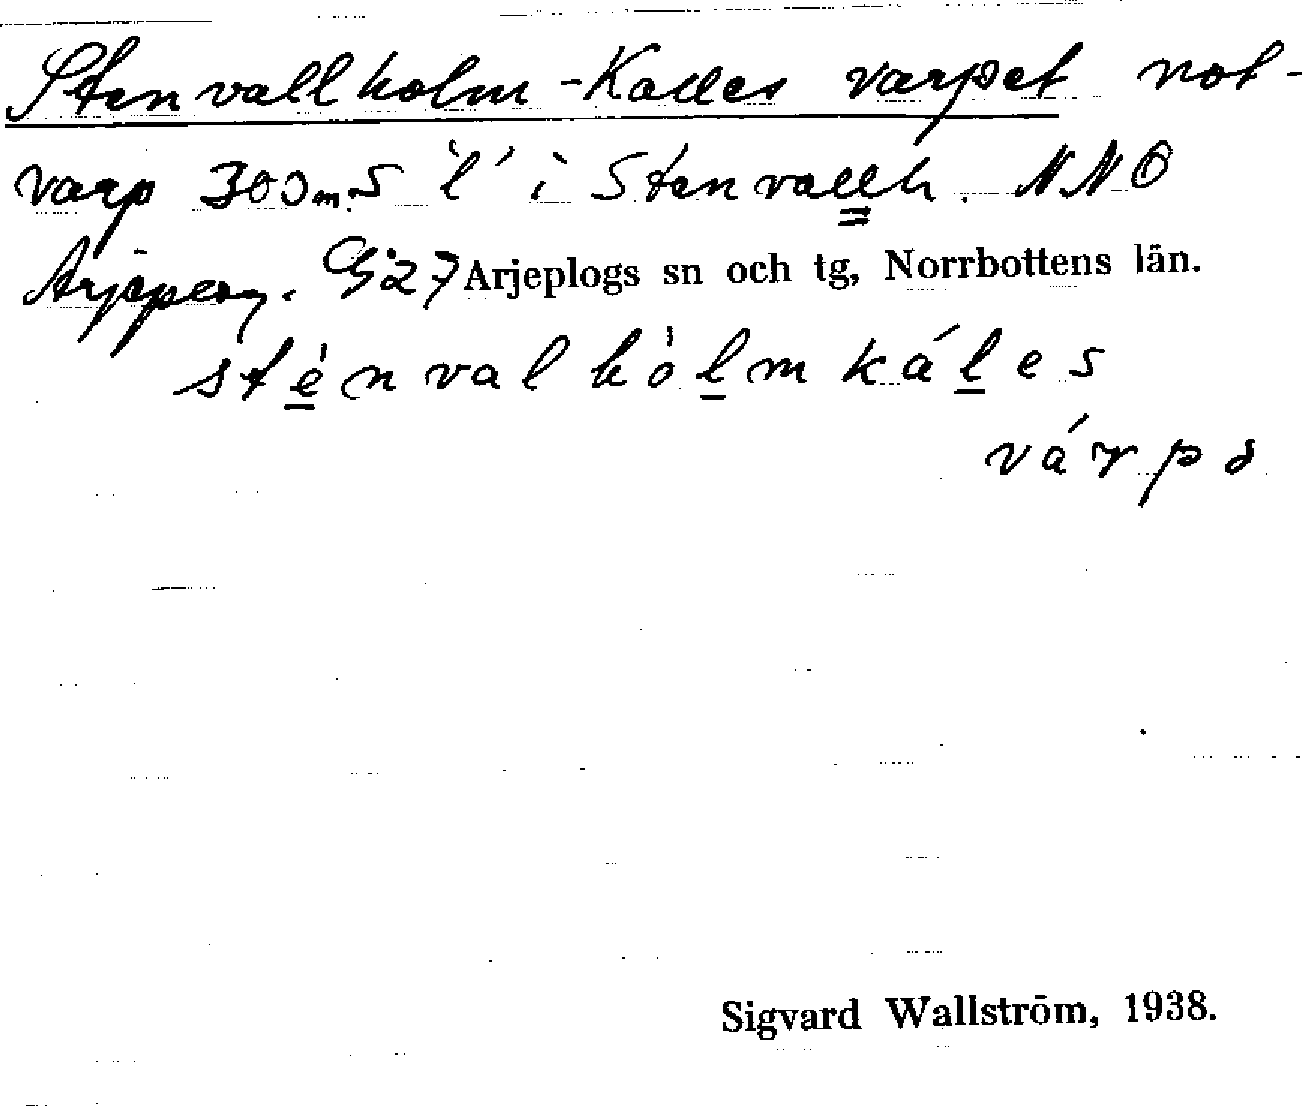 Stenvallholm-Kalles varpet not-
varp 300 m. S 'l' i Stenvallh. NNO
Arjeplog. G27 Arjeplogs sn och tg, Norrbottens län.
sténval hòlm káles
várpə
Sigvard Wallström, 1938.